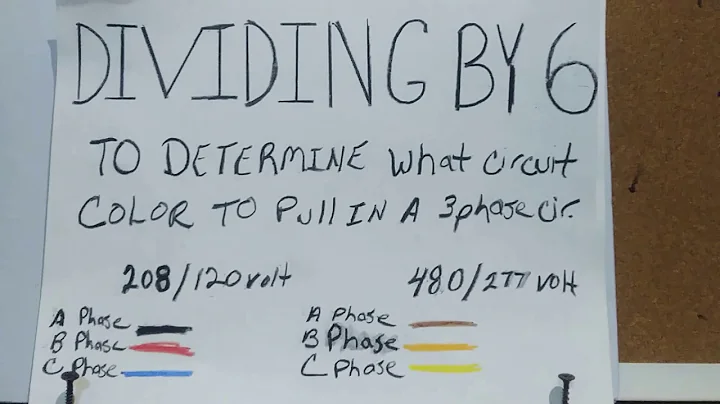 DIVIDING BY 6
TO DETERMINE what circuit
COLOR TO Pull IN A 3phase cir.
208/120 volt
A Phase
B Phase
C Phase
480/277 volt
A Phase
B Phase
C phase